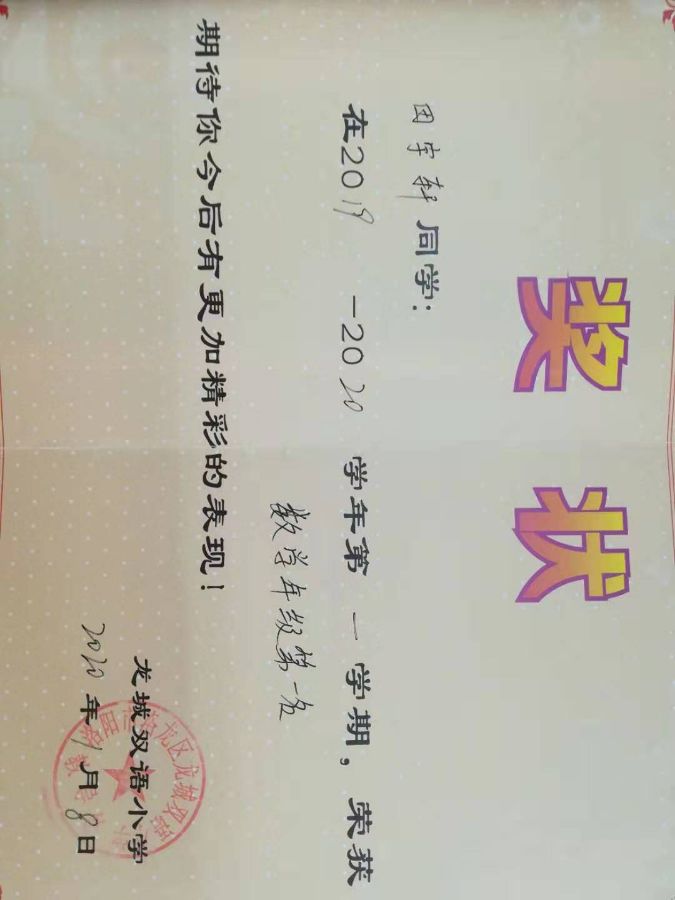 奖状
田宇轩同学:
在2019-2020学年第一学期,荣获
数学年级第一名
期待你今后有更加精彩的表现!
龙城双语小学
2020年1月8日